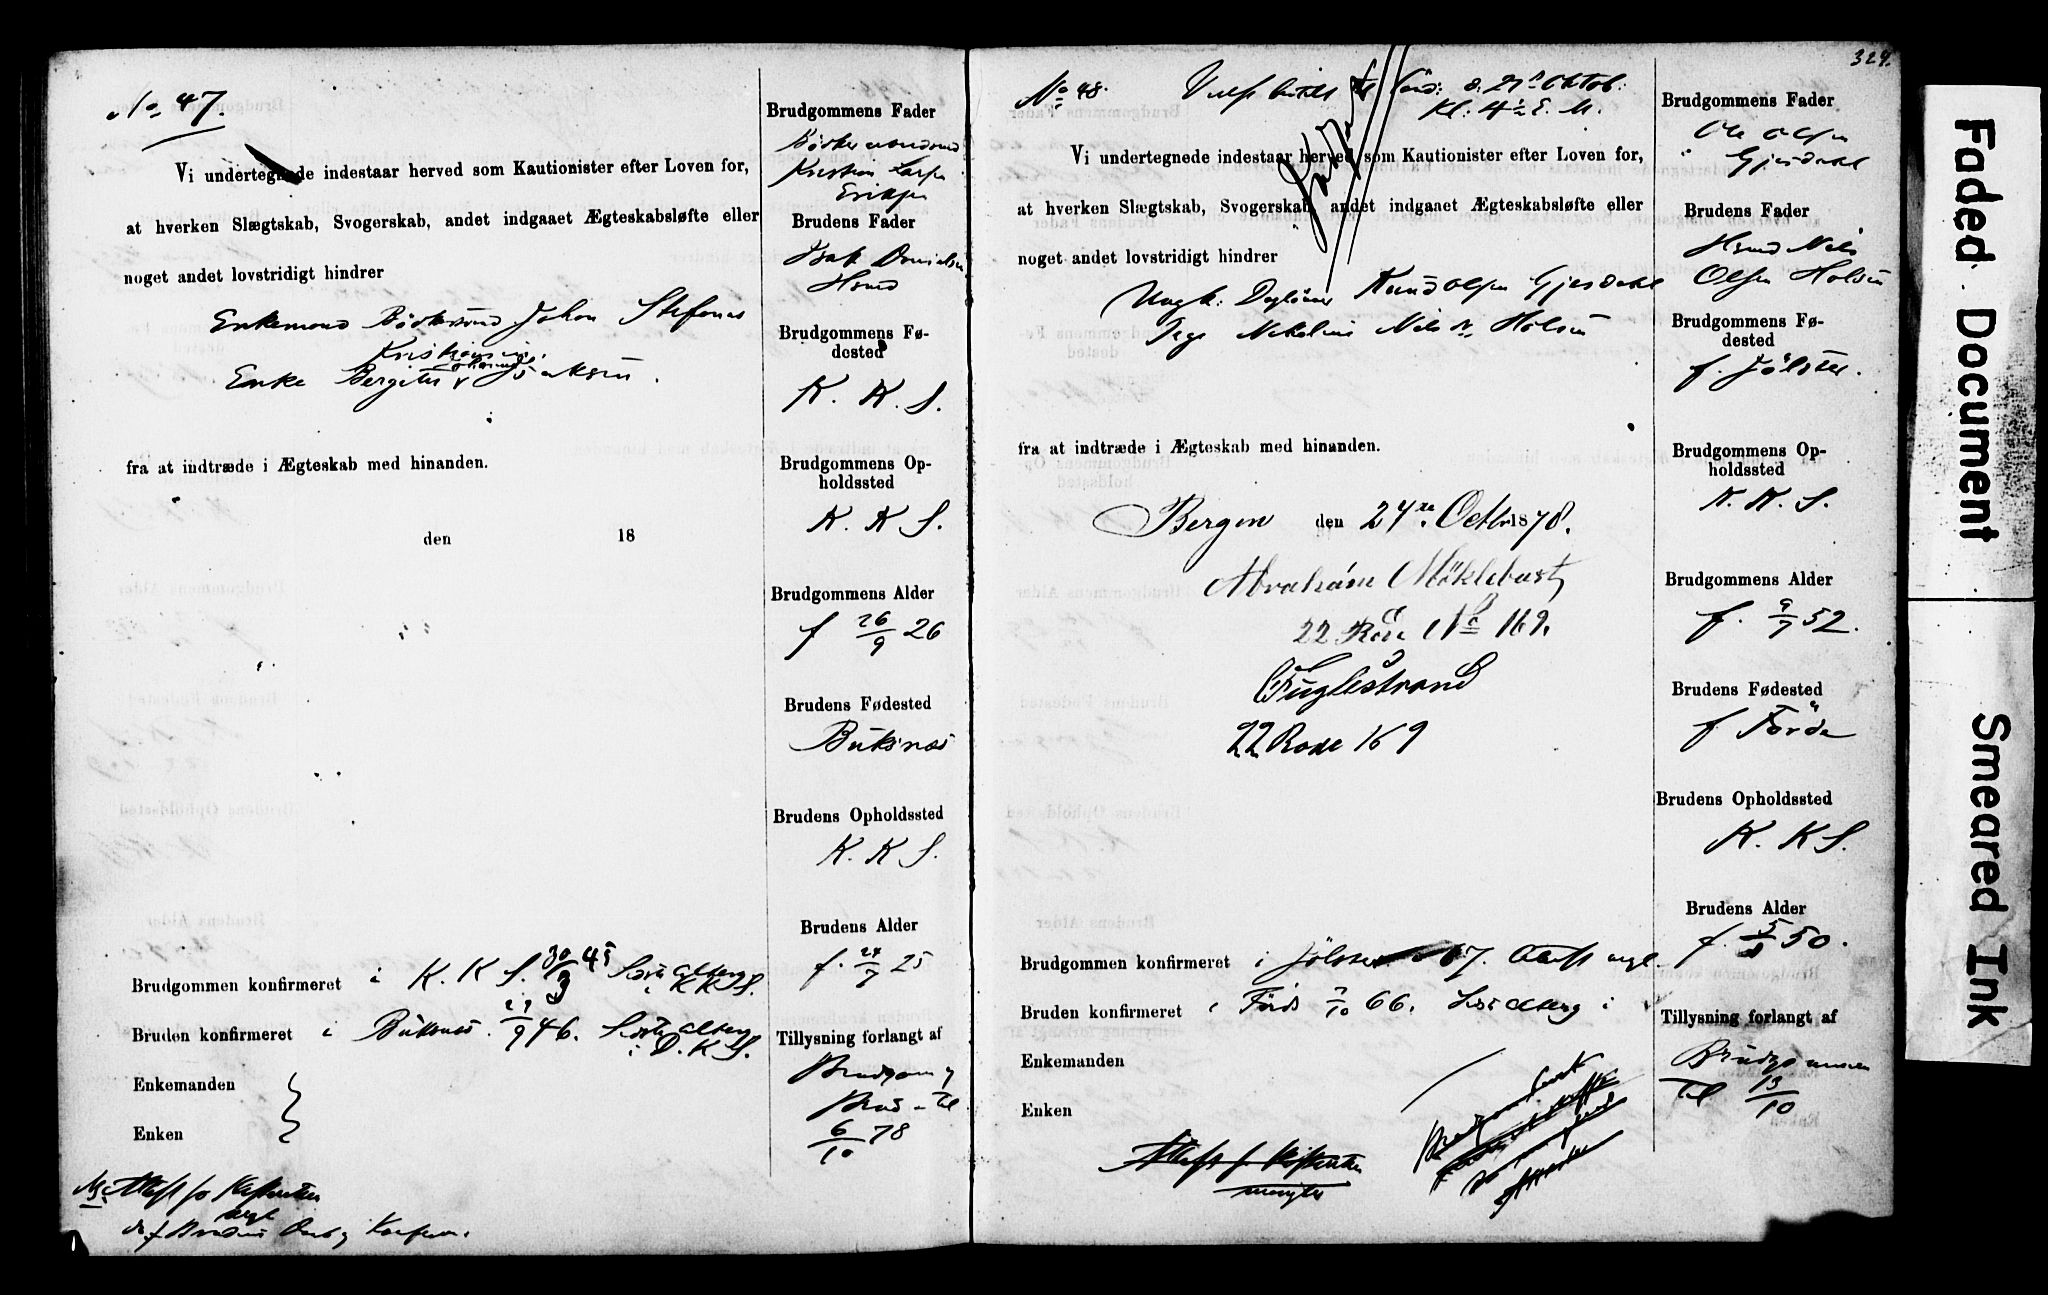 No 47.
Vi undertegnede indestaar herved som Kautionister efter Loven for,
at hverken Slægtskab, Svogerskab, andet indgaaet Ægteskabsløfte eller
noget andet lovstridigt hindrer
Enkemand Bödkersvend Johan Stefanus
Kristiansen
Enke Bergitte Isaksen.
fra at indtræde i Ægteskab med hinanden.
den 18
Brudgommen konfirmeret i K. K. S. 30/3 45
Bruden konfirmeret i Buksnes 27/9 46.
Enkemanden
Enken
Brudgommens Fader
Kristian
Brudens Fader
Isak Danielsen
Hsmd
Brudgommens Fø-
dested
K. K. S.
Brudgommens Op-
holdssted
K. K. S.
Brudgommens Alder
f 26/9 26
Brudens Fødested
Buksnes
Brudens Opholdssted
K. K. S.
Brudens Alder
f. 24/7 25
Tillysning forlangt af
Brudgom
Brud
6/10 78
324.
No 48.
Kl: 4½ E. M.
Vi undertegnede indestaar herved som Kautionister efter Loven for,
at hverken Slægtskab, Svogerskab, andet indgaaet Ægteskabsløfte eller
noget andet lovstridigt hindrer
Ungk: Knud Olsen Gjesdahl
Pige Nikoline Nilsdr. Holsen
fra at indtræde i Ægteskab med hinanden.
Bergen den 24de Octbr 1878.
Abraham Mökleburst
22 Rode No 169.
Fuglestrand
22 Rode 169
Brudgommen konfirmeret i Jölster 67. Attest mgl.
Bruden konfirmeret i Förde 7/10 66.
Enkemanden
Enken
mangler
Brudgommens Fader
Ole Olsen
Gjesdahl
Brudens Fader
Hsmd Nils
Olsen Holsen
Brudgommens Fø-
dested
f. Jölster.
Brudgommens Op-
holdssted
K. K. S.
Brudgommens Alder
f. 9/7 52.
Brudens Fødested
f Förde
Brudens Opholdssted
K. K S.
Brudens Alder
50.
Tillysning forlangt af
Brudgommen
Til 13/10
Faded Document
Smeared Ink